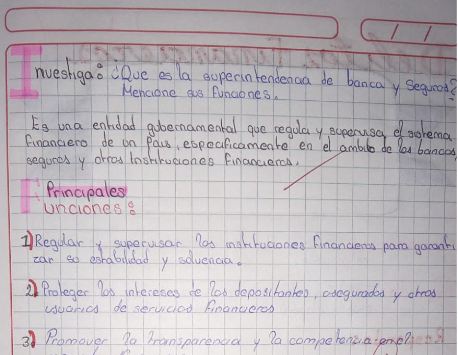 Investiga: ¿Que es la superintendencia de banca y seguros?
Mencione sus funciones.
Es una entidad gubernamental que regula y supervisa el sistema
financiero de un País, especificamente en el ambito de los bancos,
seguros y otras instituciones financieras.
Principales
Funciones:
1) Regular y supervisar las instituciones financieras para garanti
zar su estabilidad y solvencia.
2) Proteger los intereses de los depositantes, asegurados y otros
usuarios de servicios financieros
3) Promover la transparencia y la competencia en el